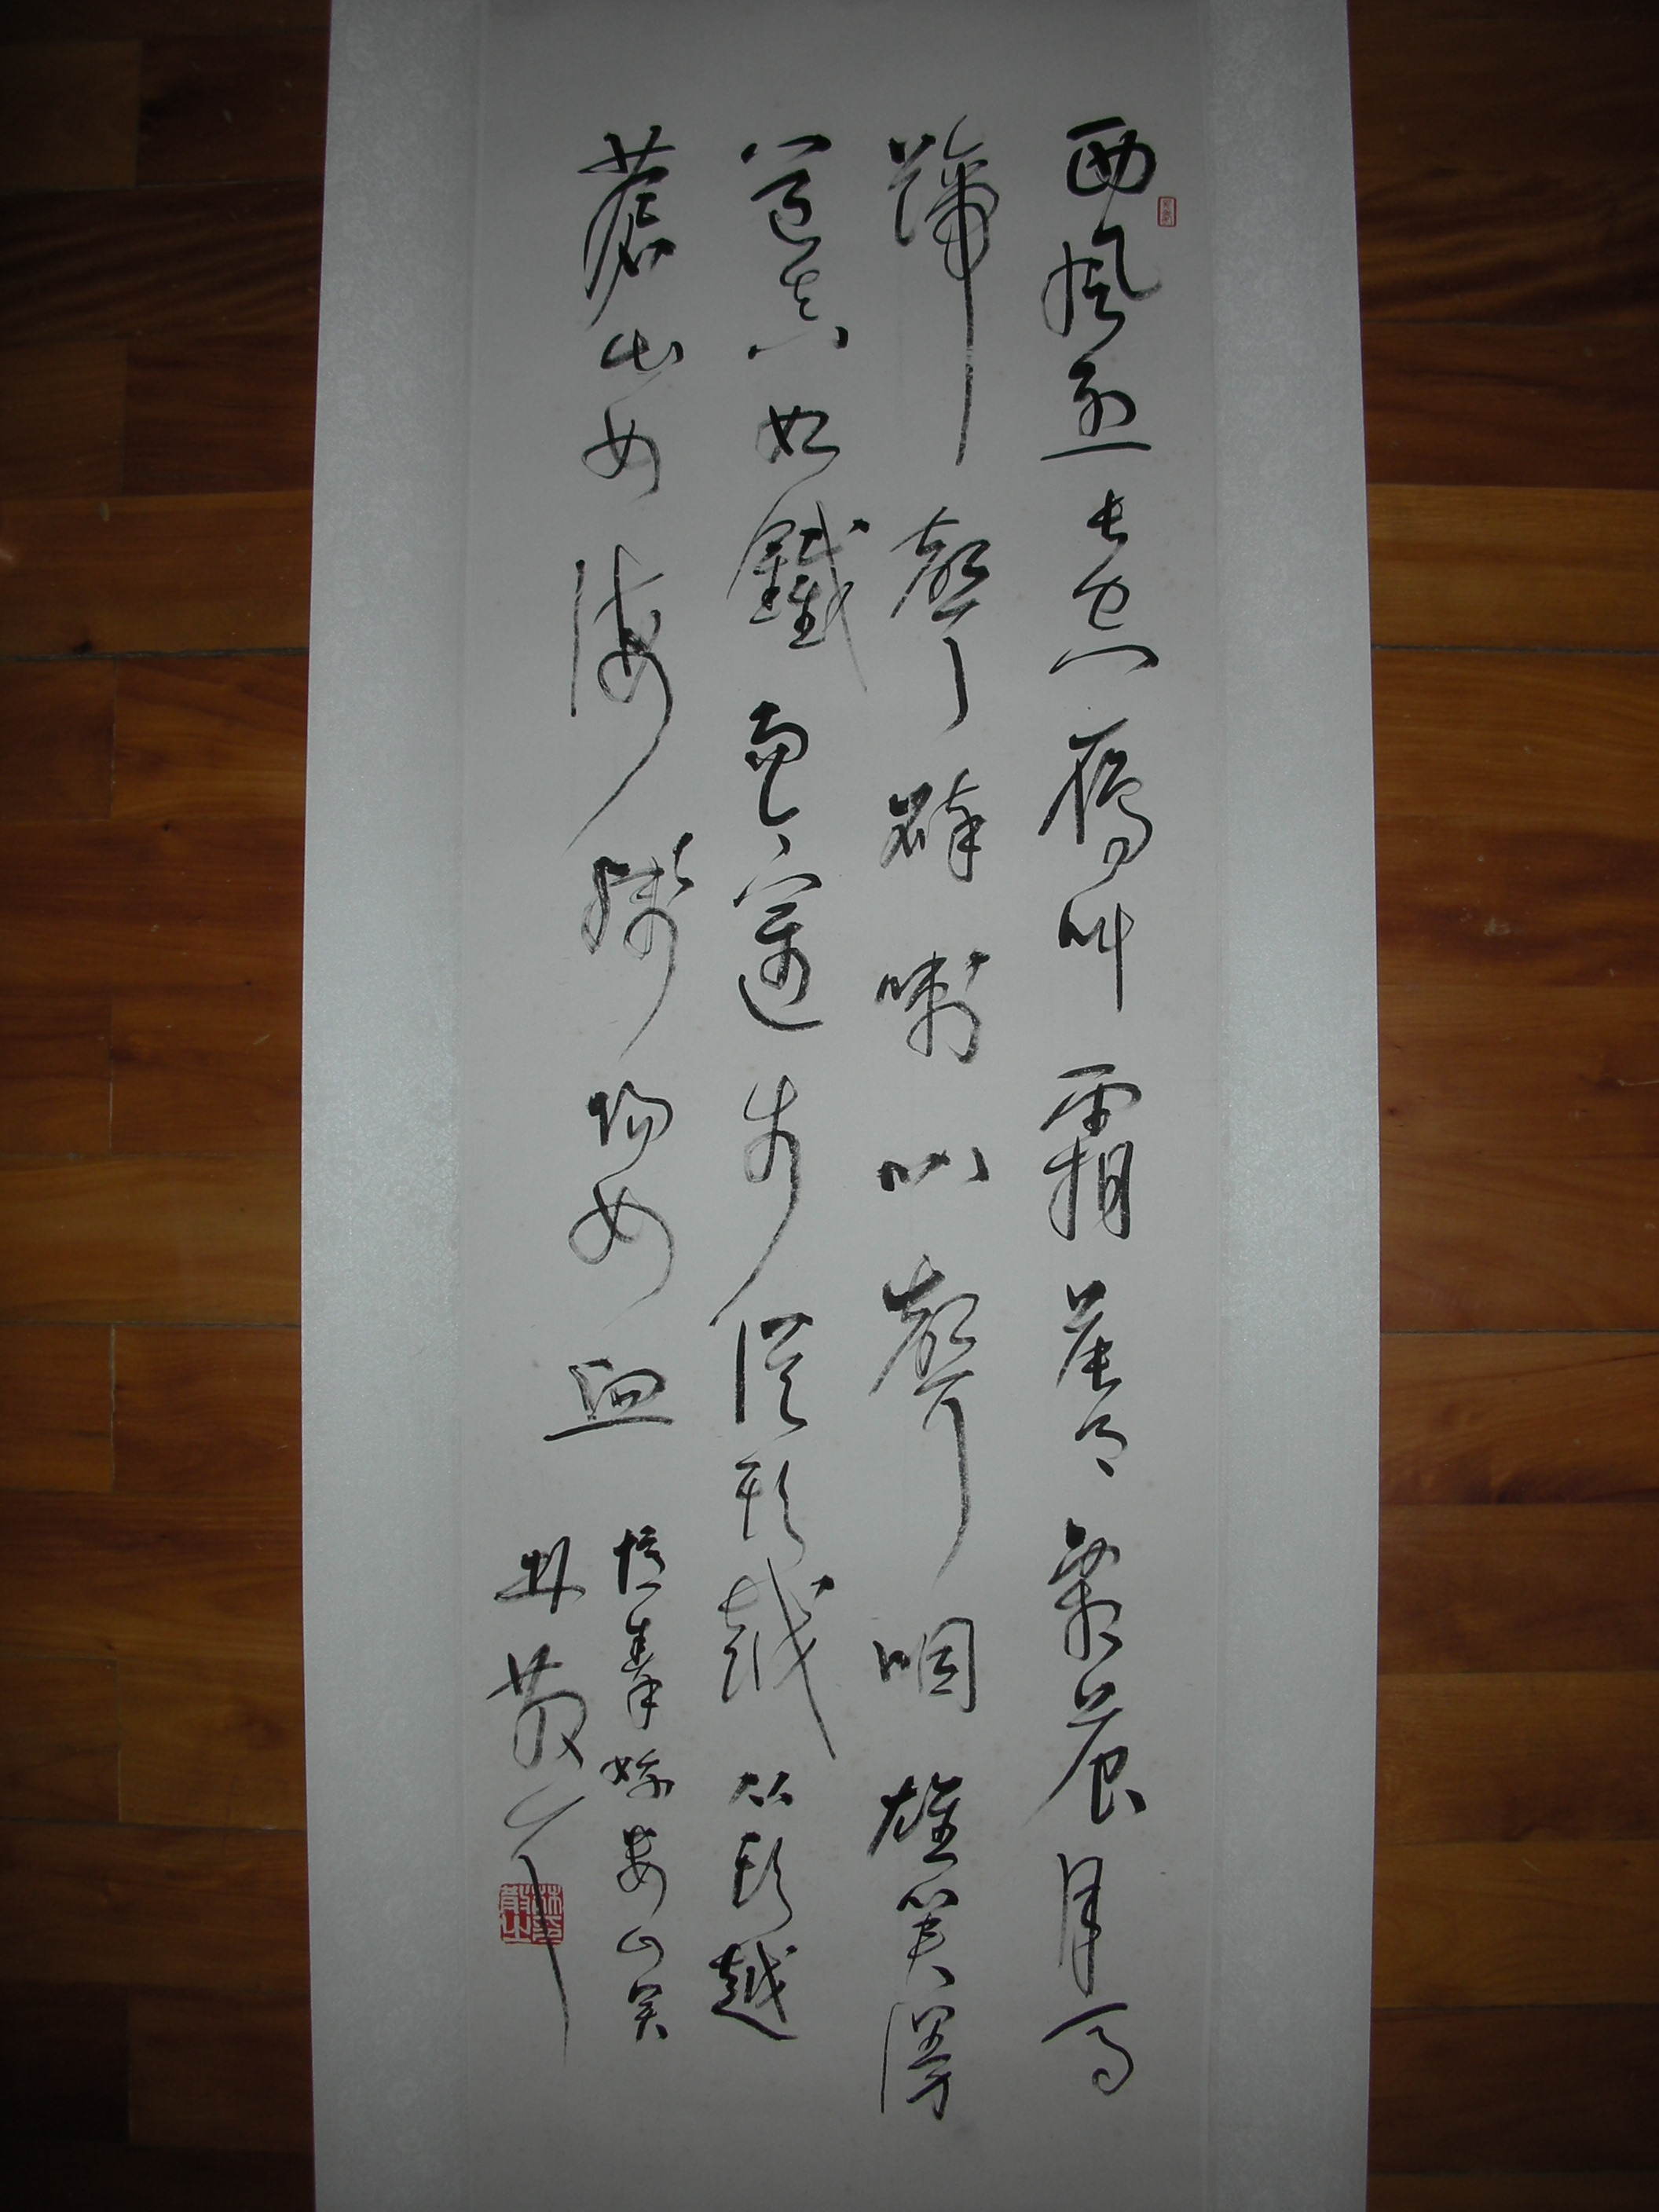 西風烈長空鴈叫霜晨月霜晨月馬
蹄聲碎喇叭聲咽雄關漫
道真如鐵而今邁步從頭越從頭越
蒼山如海殘陽如血
憶秦娥婁山關
林散之
林印散之